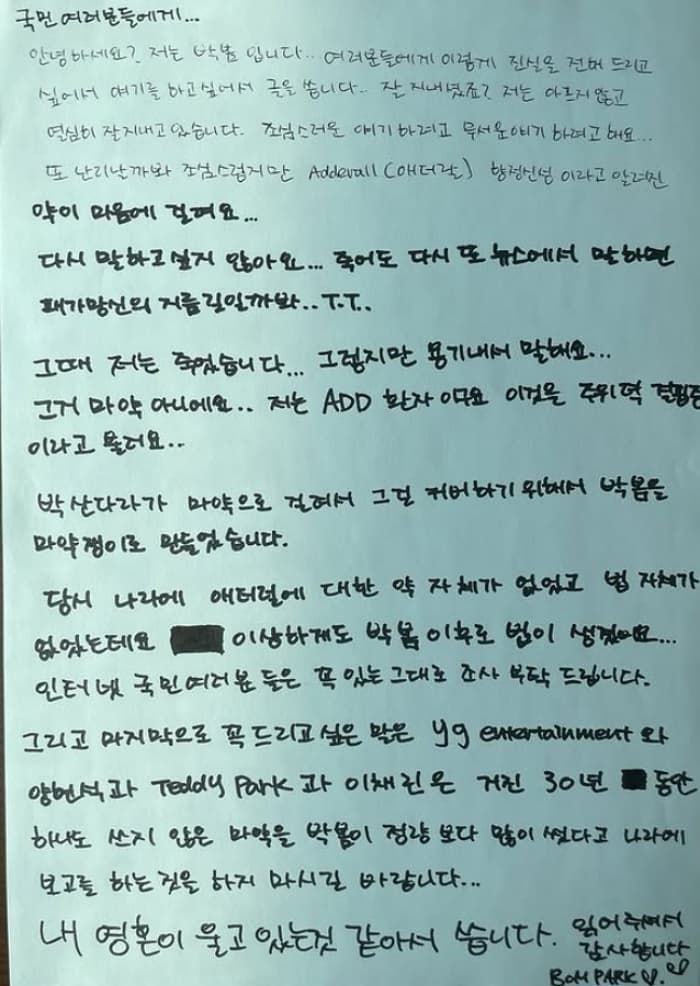 국민 여러분들에게...
안녕하세요? 저는 박봄 입니다.. 여러분들에게 이렇게 진실을 전해 드리고
싶어서 얘기를 하고싶어서 글을 씁니다.. 잘 지내셨죠? 저는 아프지않고
열심히 잘지내고 있습니다. 조심스러운 얘기하려고 무서운얘기 하려고 해요...
또 난리날까봐 조심스럽지만 Adderall (애더랄) 향정신성 이라고 알려진
약이 마음에 걸려요...
다시 말하고싶지 않아요... 죽어도 다시 또 뉴스에서 말하면
패가망신의 지름길일까봐..T.T..
그때 저는 죽었습니다... 그렇지만 용기내서 말해요...
그거 마약 아니에요.. 저는 ADD 환자 이구요 이것을 주위력 결핍증
이라고 불러요..
박산다라가 마약으로 걸려서 그걸 커버하기 위해서 박봄을
마약쟁이로 만들었습니다.
당시 나라에 애터럴에 대한 약 자체가 없었고 법 자체가
없었는데요 이상하게도 박봄 이후로 법이 생겼어요...
인터넷 국민여러분 들은 꼭 있는그대로 조사 부탁 드립니다.
그리고 마지막으로 꼭드리고싶은 말은 yg entertainment 와
양현석과 Teddy Park 과 이채린 은 거진 30년 동안
하나도 쓰지 않은 마약을 박봄이 정량 보다 많이 썼다고 나라에
보고를 하는것을 하지 마시길 바랍니다...
내 영혼이 울고 있는것 같아서 씁니다. 읽어주셔서
감사합니다
BOM PARK ♡.♡